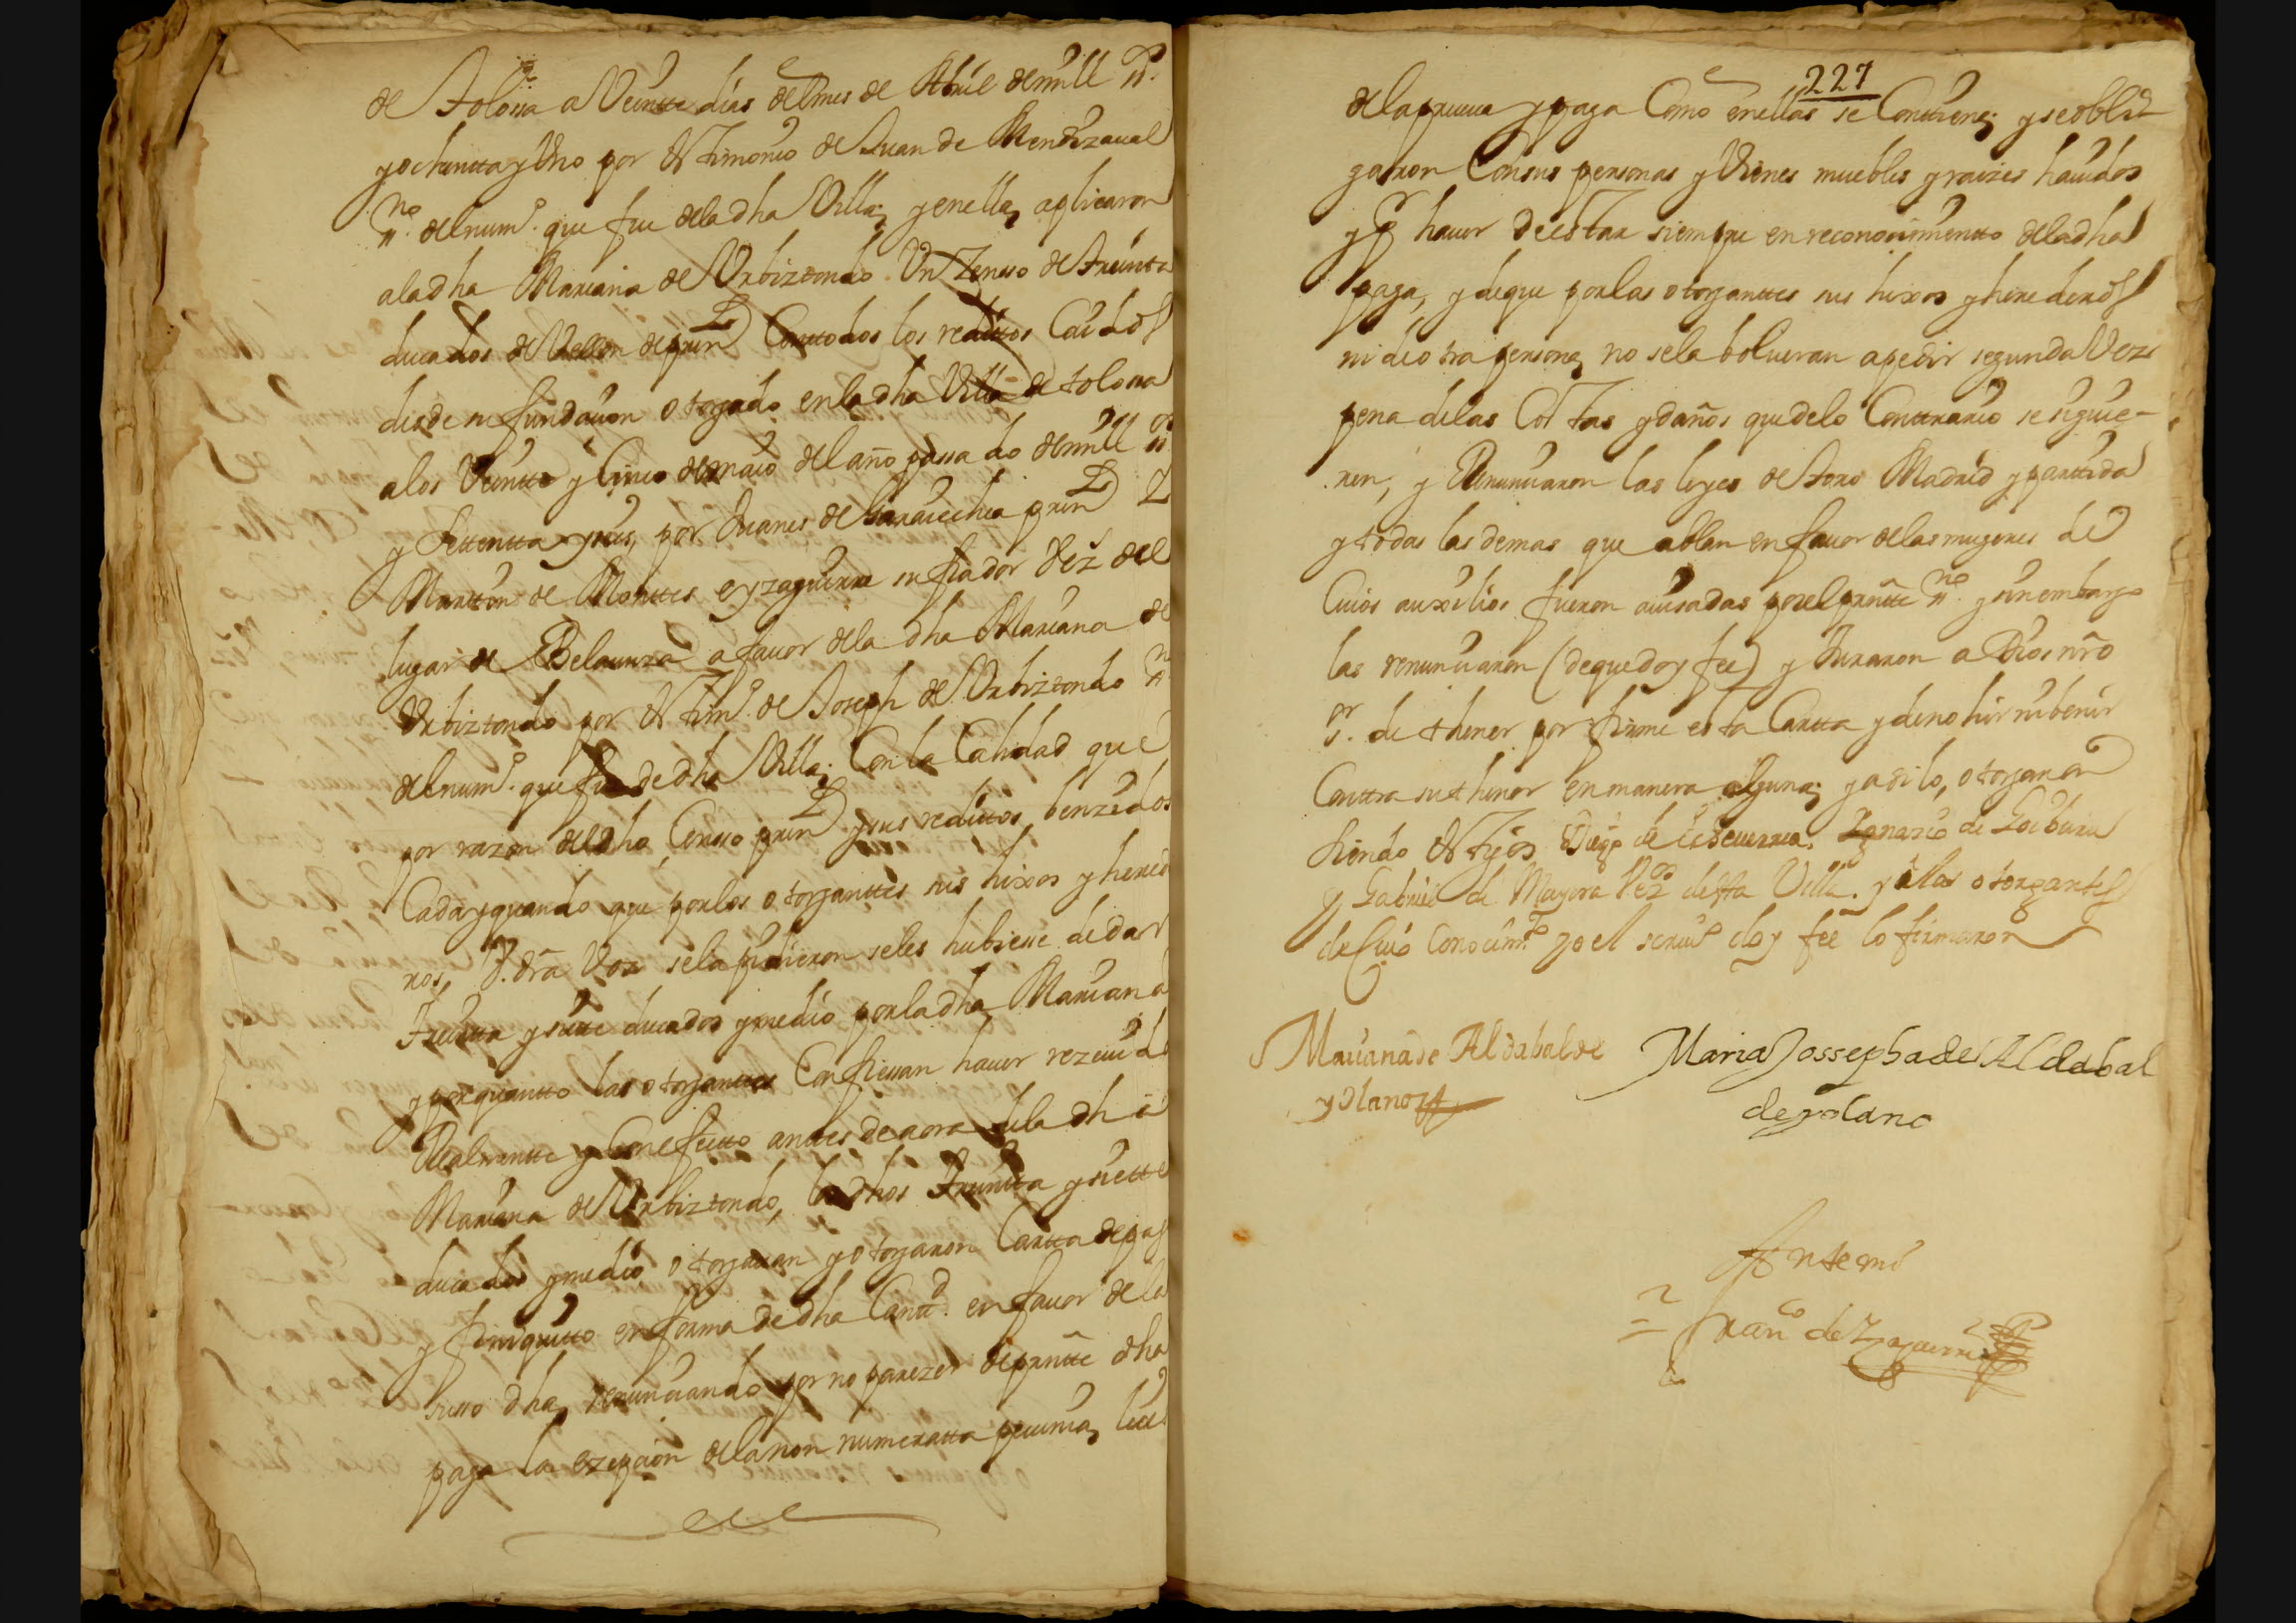 de Tolosa a Veintte dias del mes de Abril de mill
y ochentta y Uno por testimonio de Juan de Mendizaual
no. del num.º que fue de la dha Villa; y en ella, aplicaron
a la dha Mariana de Urbiztondo Un Zenso de treintta
ducados de Vellon de prinl Con todos los redittos Caidos
desde su fundaçion otorgado en la dha Villa de tolosa
a los Veintte y Cinco de maio del año passado de mill
y settentta y seis, por Juanes de prinl
Martin de Monttes eyzaguirre su fiador Vez del
lugar de Belaunza a fauor de la dha Mariana de
Urbiztondo por testim.º de Joseph de Urbiztondo
del num.º que fue de dha Villa; Con la Calidad que
por razon del dho Censo prinl y sus redittos benzidos
Cada y quando que por los otorganttes sus hixos y herede
ros, V. otra Voz se la pidieron se les hubiesse de dar
Treintta y siette ducados y medio por la dha Mariana
y por quantto las otorganttes Confiessan hauer rezeuido
Realmentte y Con efectto anttes de aora de la dha
Mariana de Urbiztondo, los dhos treintta y siette
ducados y medio otorgauan y otorgaron Cartta de pag
y finiquitto en forma de dha Cantt.d en fauor de la
susso dha, renunciando por no parezer de pressntte dha
paga la ezepçion de la non numeratta pecunia, leies
227
de la prueua y paga Como en ellas se Conttiene; y se obli
garon Con sus personas y Vienes muebles y raizes hauidos
y pr hauer de estar siempre en reconocimientto de la dha
paga, y de que por las otorganttes sus hixos y herederos
ni de otra persona, no se la bolueran a pedir segunda Vez
pena de las Costas y daños que de lo Conttrario se siguie-
ren, y Renunciaron las leyes de toro Madrid y parttida
y todas las demas que ablan en fauor de las mugeres de
Cuios auxilios fueron auisadas por el pressntte no. y sin embargo
las renunciaron (de que doy fee) y Juraron a Dios nro
sr. de thener por firme esta Cartta y de no hir ni benir
Conttra su thenor en manera alguna; y asi lo, otorgaron
siendo testigos Diego de Echeuerria, Ignazio de Goiburu
y Gabriel de Mayora Vezos desta Villa. y a las otorgantes
de Cuio Conocimto yo el scriuo doy fee lo firmaron
Mariana de Aldabalde
y olano
Maria Jossepha de Aldabal
de y olano
Ante mi
Franco de Yzaguirre